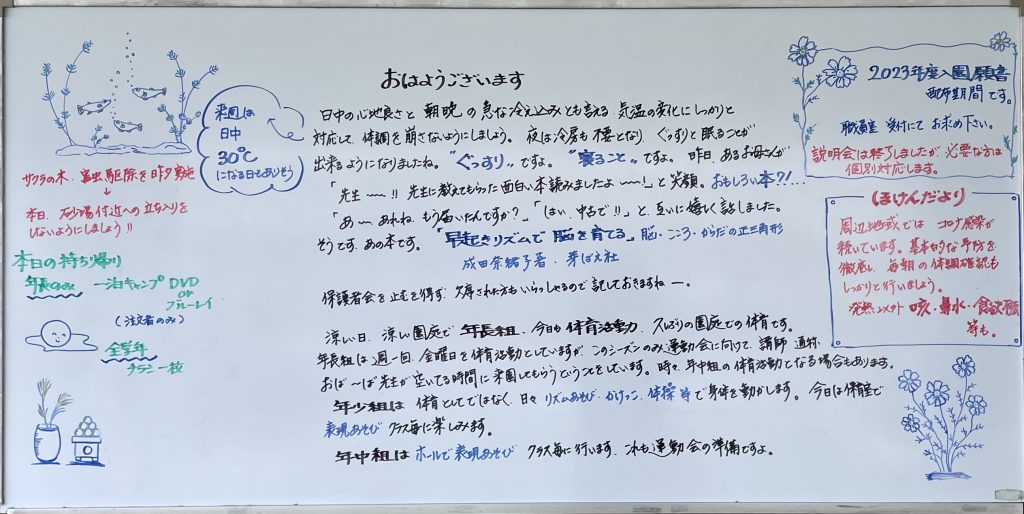 おはようございます
日中の心地良さと 朝晩の急な冷え込みとも言える 気温の変化にしっかりと
対応して、体調を崩さないようにしましょう。 夜は冷房も不要となり、ぐっすりと眠ることが
出来るようになりましたね。"ぐっすり"ですよ。"寝ること"ですよ。昨日、あるお母さんが
「先生 〜〜 !! 先生に教えてもらった面白い本読みましたよ 〜〜!」と笑顔。おもしろい本?!...
「あ〜 あれね、もう届いたんですか?」「はい、中古で!!」と、互いに嬉しく話しました。
そうです、あの本です。「早起きリズムで脳を育てる」脳・こころ・からだの正三角形
成田奈緒子著・芽ばえ社
保護者会を止むを得ず、欠席された方もいらっしゃるので記しておきますねー。
涼しい日、涼しい園庭で 年長組、今日も体育活動、久しぶりの園庭での体育です。
年長組は週一回、金曜日を体育活動としていますが、このシーズンのみ運動会に向けて、講師
おば〜ば先生が空いてる時間に来園してもらうということをしています。時々、年中組の体育活動となる場合もあります。
年少組は 体育としてではなく、日々 リズムあそび・かけっこ・体操 等で身体を動かします。今日は保育室で
表現あそび クラス毎に楽しみます。
年中組は ホールで表現あそび クラス毎に行います。これも運動会の準備ですよ。
来週は
日中
30℃
になる日もありそう
サクラの木、害虫駆除を昨夕実施
↓
本日、砂場付近への立ち入りを
しないようにしましょう!!
本日の持ち帰り
年長のみ 一泊キャンプ DVD
or
ブルーレイ
(注文者のみ)
全学年
チラシ一枚
2023年度入園願書
配布期間です。
職員室 受付にてお求め下さい。
説明会は終了しましたが必要な方は
個別対応します。
ほけんだより
周辺地域では コロナ感染が
続いています。基本的な予防を
徹底し、毎朝の体調確認も
しっかりと行いましょう。
発熱 以外 咳・鼻水・食欲
等も。